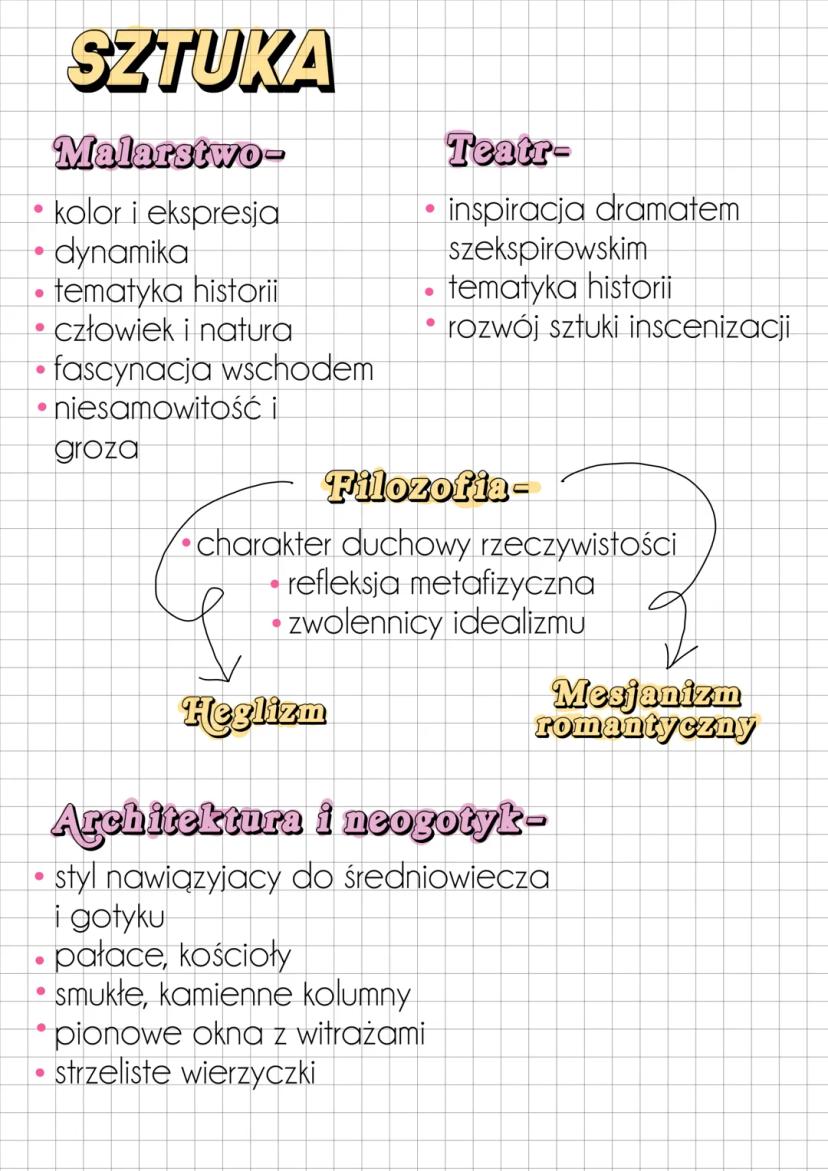 SZTUKA
Malarstwo-
• kolor i ekspresja
• dynamika
• tematyka historii
• człowiek i natura
• fascynacja wschodem
• niesamowitość i
groza
Teatr-
• inspiracja dramatem
szekspirowskim
• tematyka historii
• rozwój sztuki inscenizacji
Filozofia-
• charakter duchowy rzeczywistości
• refleksja metafizyczna
• zwolennicy idealizmu
Heglizm
Mesjanizm
romantyczny
Architektura i neogotyk-
• styl nawiązyjacy do średniowiecza
i gotyku
• pałace, kościoły
• smukłe, kamienne kolumny
• pionowe okna z witrażami
• strzeliste wierzyczki